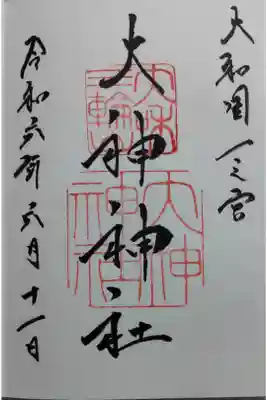 大和国一之宮
大神神社
令和六年六月十一日
大和
三輪
大神
神社